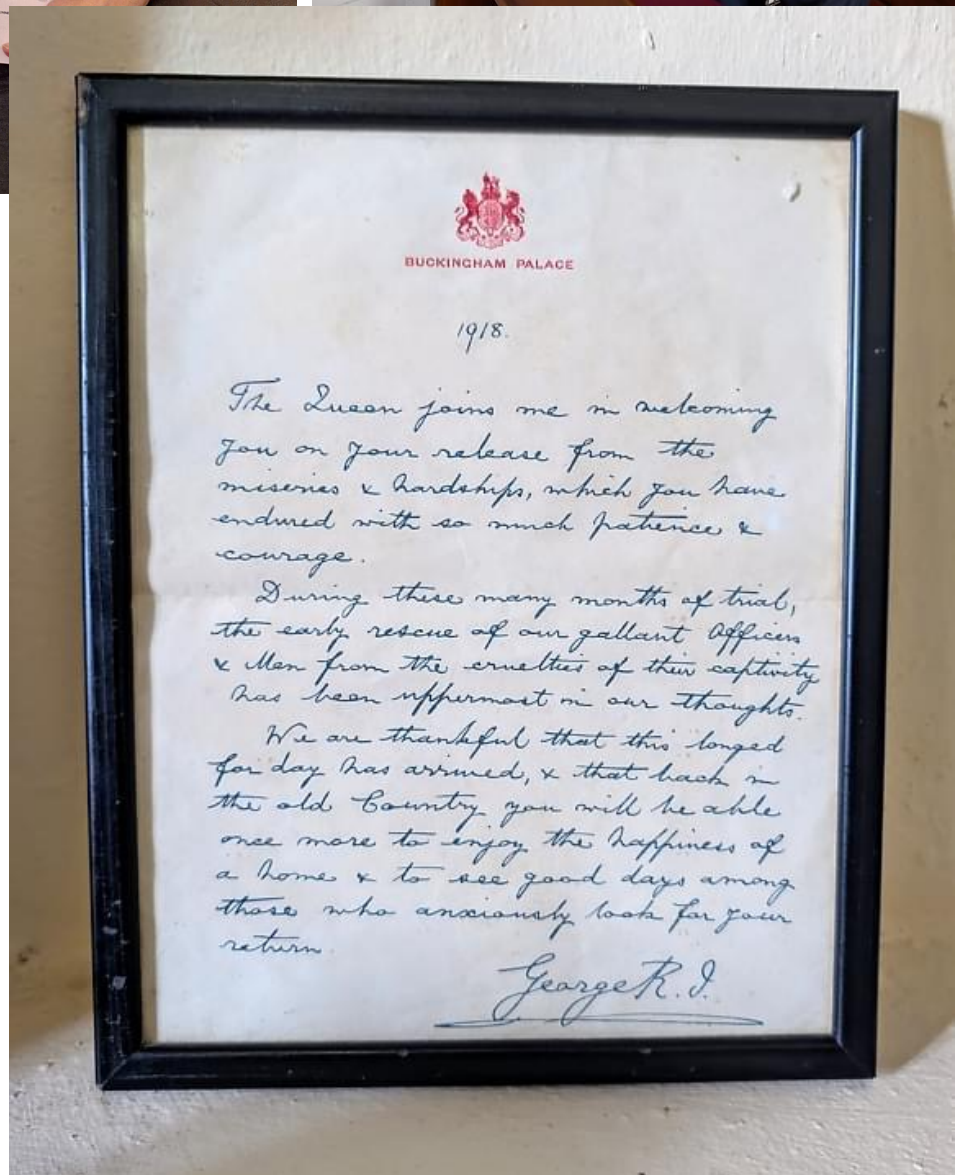 BUCKINGHAM PALACE
1918.
The Queen joins me in welcoming
you on your release from the
miseries & hardships, which you have
endured with so much patience &
courage.
During these many months of trial,
the early rescue of our gallant Officers
& Men from the cruelties of their captivity
has been uppermost in our thoughts.
We are thankful that this longed
for day has arrived, & that back in
the old Country you will be able
once more to enjoy the happiness of
a home & to see good days among
those who anxiously look for your
return.
George R. I.